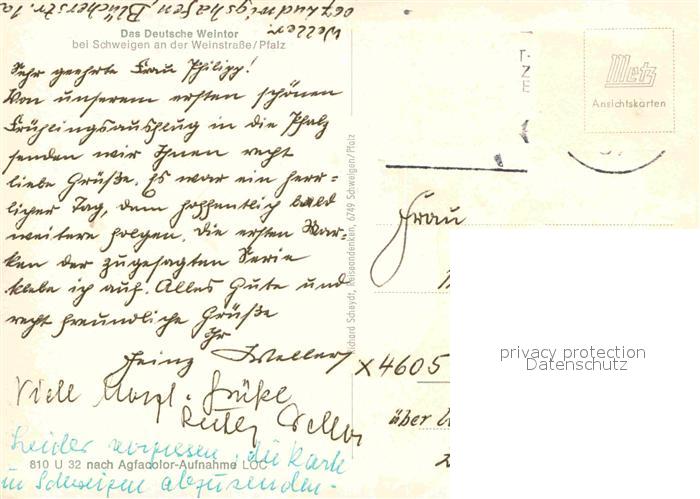 Weller
067 Ludwigshafen, Blücherstr. 10
Das Deutsche Weintor
bei Schweigen an der Weinstraße/Pfalz
Sehr geehrte Frau Philipp!
Von unserem ersten schönen
Frühlingsausflug in die Pfalz
senden wir Ihnen recht
liebe Grüße. Es war ein herr=
licher Tag, dem hoffentlich bald
weitere folgen. Die ersten Mar=
ken der zugesagten Serie
klebe ich auf. Alles Gute und
recht freundliche Grüße
Ihr
Heinz Weller
Viele Grüße
Weller
Leider vergessen, die Karte
in Schweigen abzusenden.
810 U 32 nach Agfacolor-Aufnahme LOC
Richard Scheydt, Reiseandenken, 6749 Schweigen/Pfalz
Metz
Ansichtskarten
Frau
X4605
über
privacy protection
Datenschutz